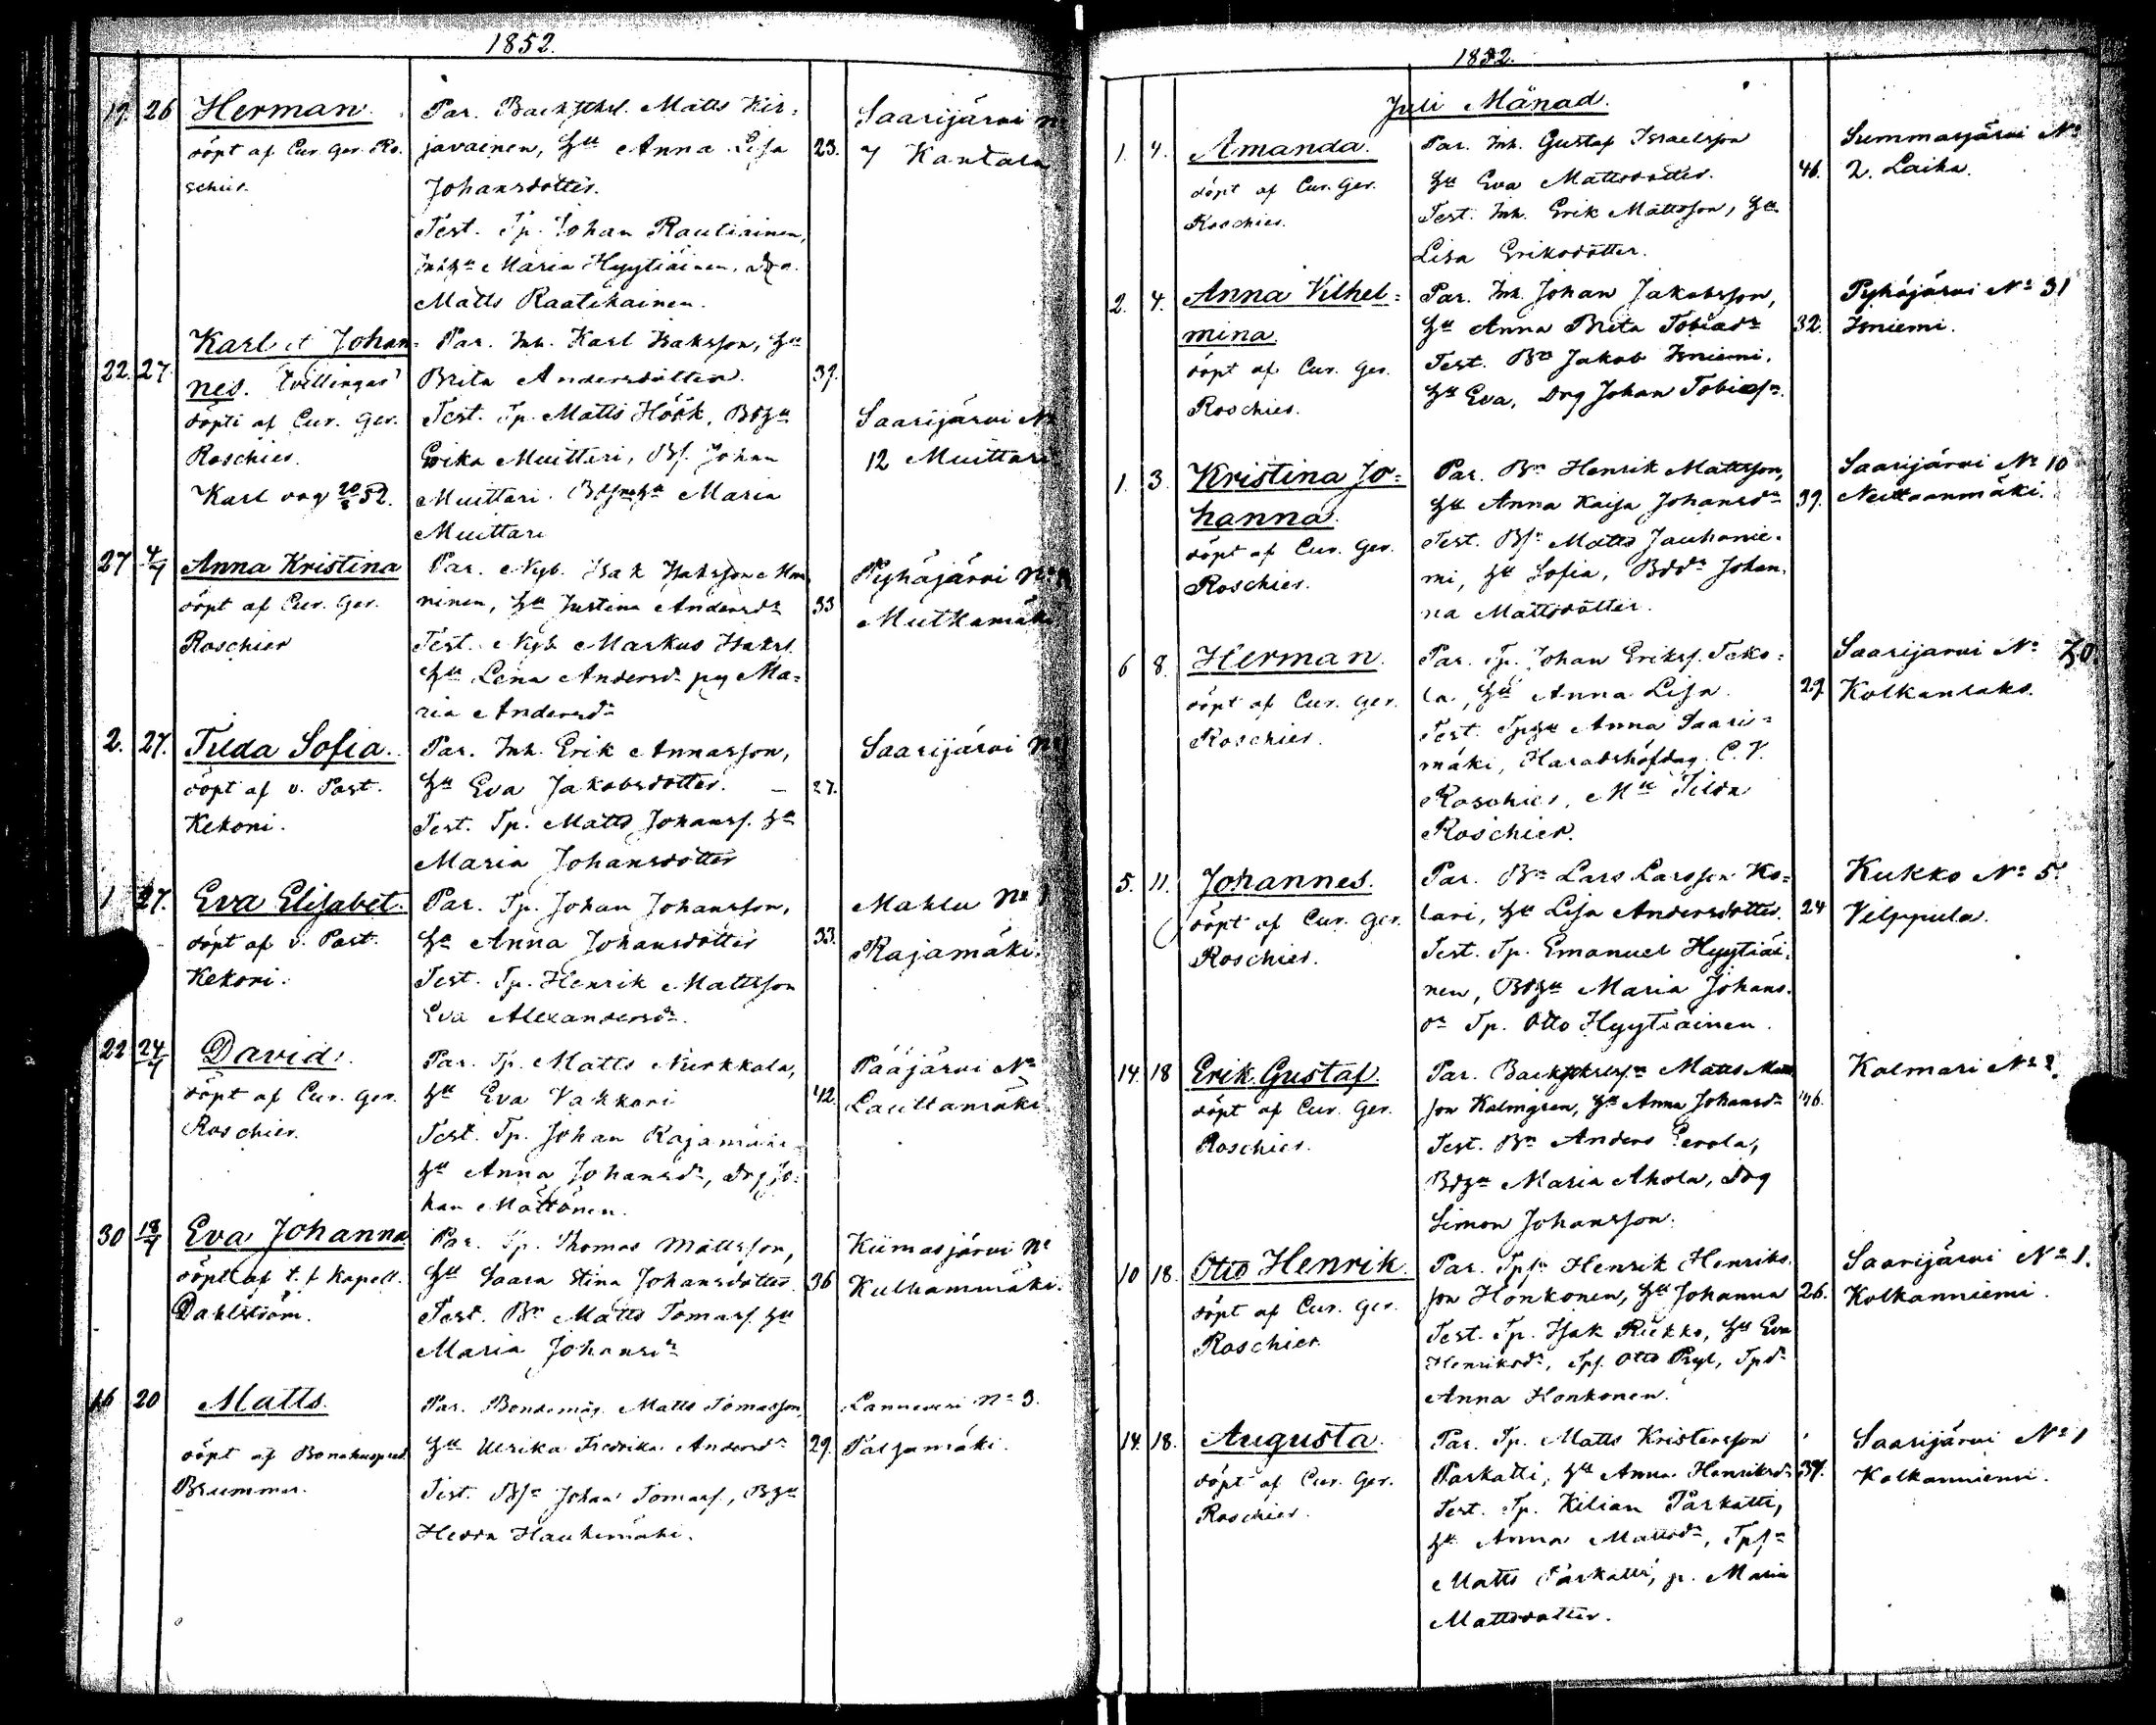 1852.
19. 26 Herman. Par. Backstksl. Matts Kir- Saarijärvi No
döpt af Cur. Ger. Ro- javainen, Hu Anna Lisa 23. 7 Kantala
schier. Johansdotter.
Test. Tp. Johan Rautiainen,
Inhhu Maria Hyytiäinen, drg
Matts Raatikainen.
Karl et Johan- Par. Inh. Karl Isaksson, Hu
22. 27. nes. tvillingar Brita Andersdotter. 39.
döpti af Cur. Ger. Test. Tp. Matts Höök, Bdhu Saarijärvi No
Roschier. Erika Muittari, Bs. Johan 12 Muittari
Karl dog 20/8 52. Muittari. Maria
Muittari
27 4/7 Anna Kristina Par. Nyb. Isak Isaksson Pyhäjärvi No
döpt af Cur. Ger. ninen, Hu Justina Andersdr 33 Mutkamäki
Roschier Test. Nyb. Markus Isaks.
Hu Lena Andersdr pig Ma-
ria Andersdr
2. 27. Tilda Sofia. Par. Inh. Erik Annasson, Saarijärvi No
döpt af v. Past. Hu Eva Jakobsdotter. 27.
Kekoni. Test. Tp. Matts Johanss. Hu
Maria Johansdotter
1 27. Eva Elisabet. Par. Tp. Johan Johansson, Mahlu No 1
döpt af v. Past. Hu Anna Johansdotter 33. Rajamäki.
Kekoni. Test. Tp. Henrik Mattsson
Eva Alexandersdr.
22 24/7 David. Par. Tp. Matts Nurkkala, Pääjärvi No
döpt af Cur. Ger. Hu Eva Vakkari 42. Lauttamäki
Roschier. Test. Tp. Johan Rajamäki
Hu Anna Johansdr, drg Jo-
han Möttönen.
30 18/7 Eva Johanna Par. Tp. Thomas Mattsson, Kiimasjärvi No
döpt af t. f. Kapell. Hu Saara Stina Johansdotter. 36 Kulhammäki.
Dahlström. Test. Bn Matts Tomass. Hu
Maria Johansdr
16 20 Matts. Par. Bondemåg Matts Tomasson, Lannevesi No 3.
döpt af Bönehuspred. Hu Ulrika Fredrika Andersdr 29. Paljamäki.
Brummer. Test. Bsn Johan Tomass., Bhu
Hedda Haukimäki.
1852.
Juli Månad.
1. 4. Amanda. Par. Inh. Gustaf Israelsson Summasjärvi No
döpt af Cur. Ger. Hu Eva Mattsdotter. 46. 2. Laiha.
Roschier. Test. Inh. Erik Mattsson, Hu
Lisa Eriksdotter.
2. 4. Anna Vilhel- Par. Inh. Johan Jakobsson, Pyhäjärvi No 31
mina. Hu Anna Brita Tobiadr 32. Isniemi.
döpt af Cur. Ger. Test. Bn Jakob Isniemi,
Roschier. Hu Eva, Drg Johan Tobiasn.
1. 3. Kristina Jo- Par. Bn Henrik Mattsson, Saarijärvi No 10
hanna. Hu Anna Kaisa Johansdr 39.
döpt af Cur. Ger. Test. Bsn Matts Jauhonie-
Roschier. mi, Hu Sofia, Bddr Johan-
na Mattsdotter.
6 8. Herman. Par. Tp. Johan Erikss. Tako- Saarijärvi No 30.
döpt af Cur. Ger. la, Hu Anna Lisa. 29. Kolkanlaks.
Roschier. Test. Tphu Anna Saari-
mäki, Häradshöfdng. C. V.
Roschier, Mll Tilda
Roschier.
5. 11. Johannes. Par. Bn Lars Larsson Ko- Kukko No 5.
döpt af Cur. Ger. lari, Hu Lisa Andersdotter. 24 Vilppula.
Roschier. Test. Tp. Emanuel Hyytiäi-
nen, Bdhu Maria Johans-
dr Tp. Otto Hyytiäinen.
14. 18 Erik Gustaf. Par. Matts Matts- Kolmari No 2.
döpt af Cur. Ger. son Kalmgren, Hu Anna Johansdr 46.
Roschier. Test. Bn Anders Eerola,
Bdhu Maria Ahola, Drg
Simon Johansson.
10 18. Otto Henrik. Par. Tpsn Henrik Henriks- Saarijärvi No 1.
döpt af Cur. Ger. son Honkonen, Hu Johanna 26. Kolkanniemi.
Roschier. Test. Tp. Isak Riekko, Hu Eva
Henriksdr, Tps. Otto Pryl, Tpdr
Anna Honkonen.
14. 18. Augusta. Par. Tp. Matts Kristersson Saarijärvi No 1
döpt af Cur. Ger. Parkatti, Hu Anna Henriksdr 37. Kolkanniemi.
Roschier. Test. Tp. Kilian Parkatti,
Hu Anna Mattsdr, Tpsn
Matts Parkatti, p. Maria
Mattsdotter.